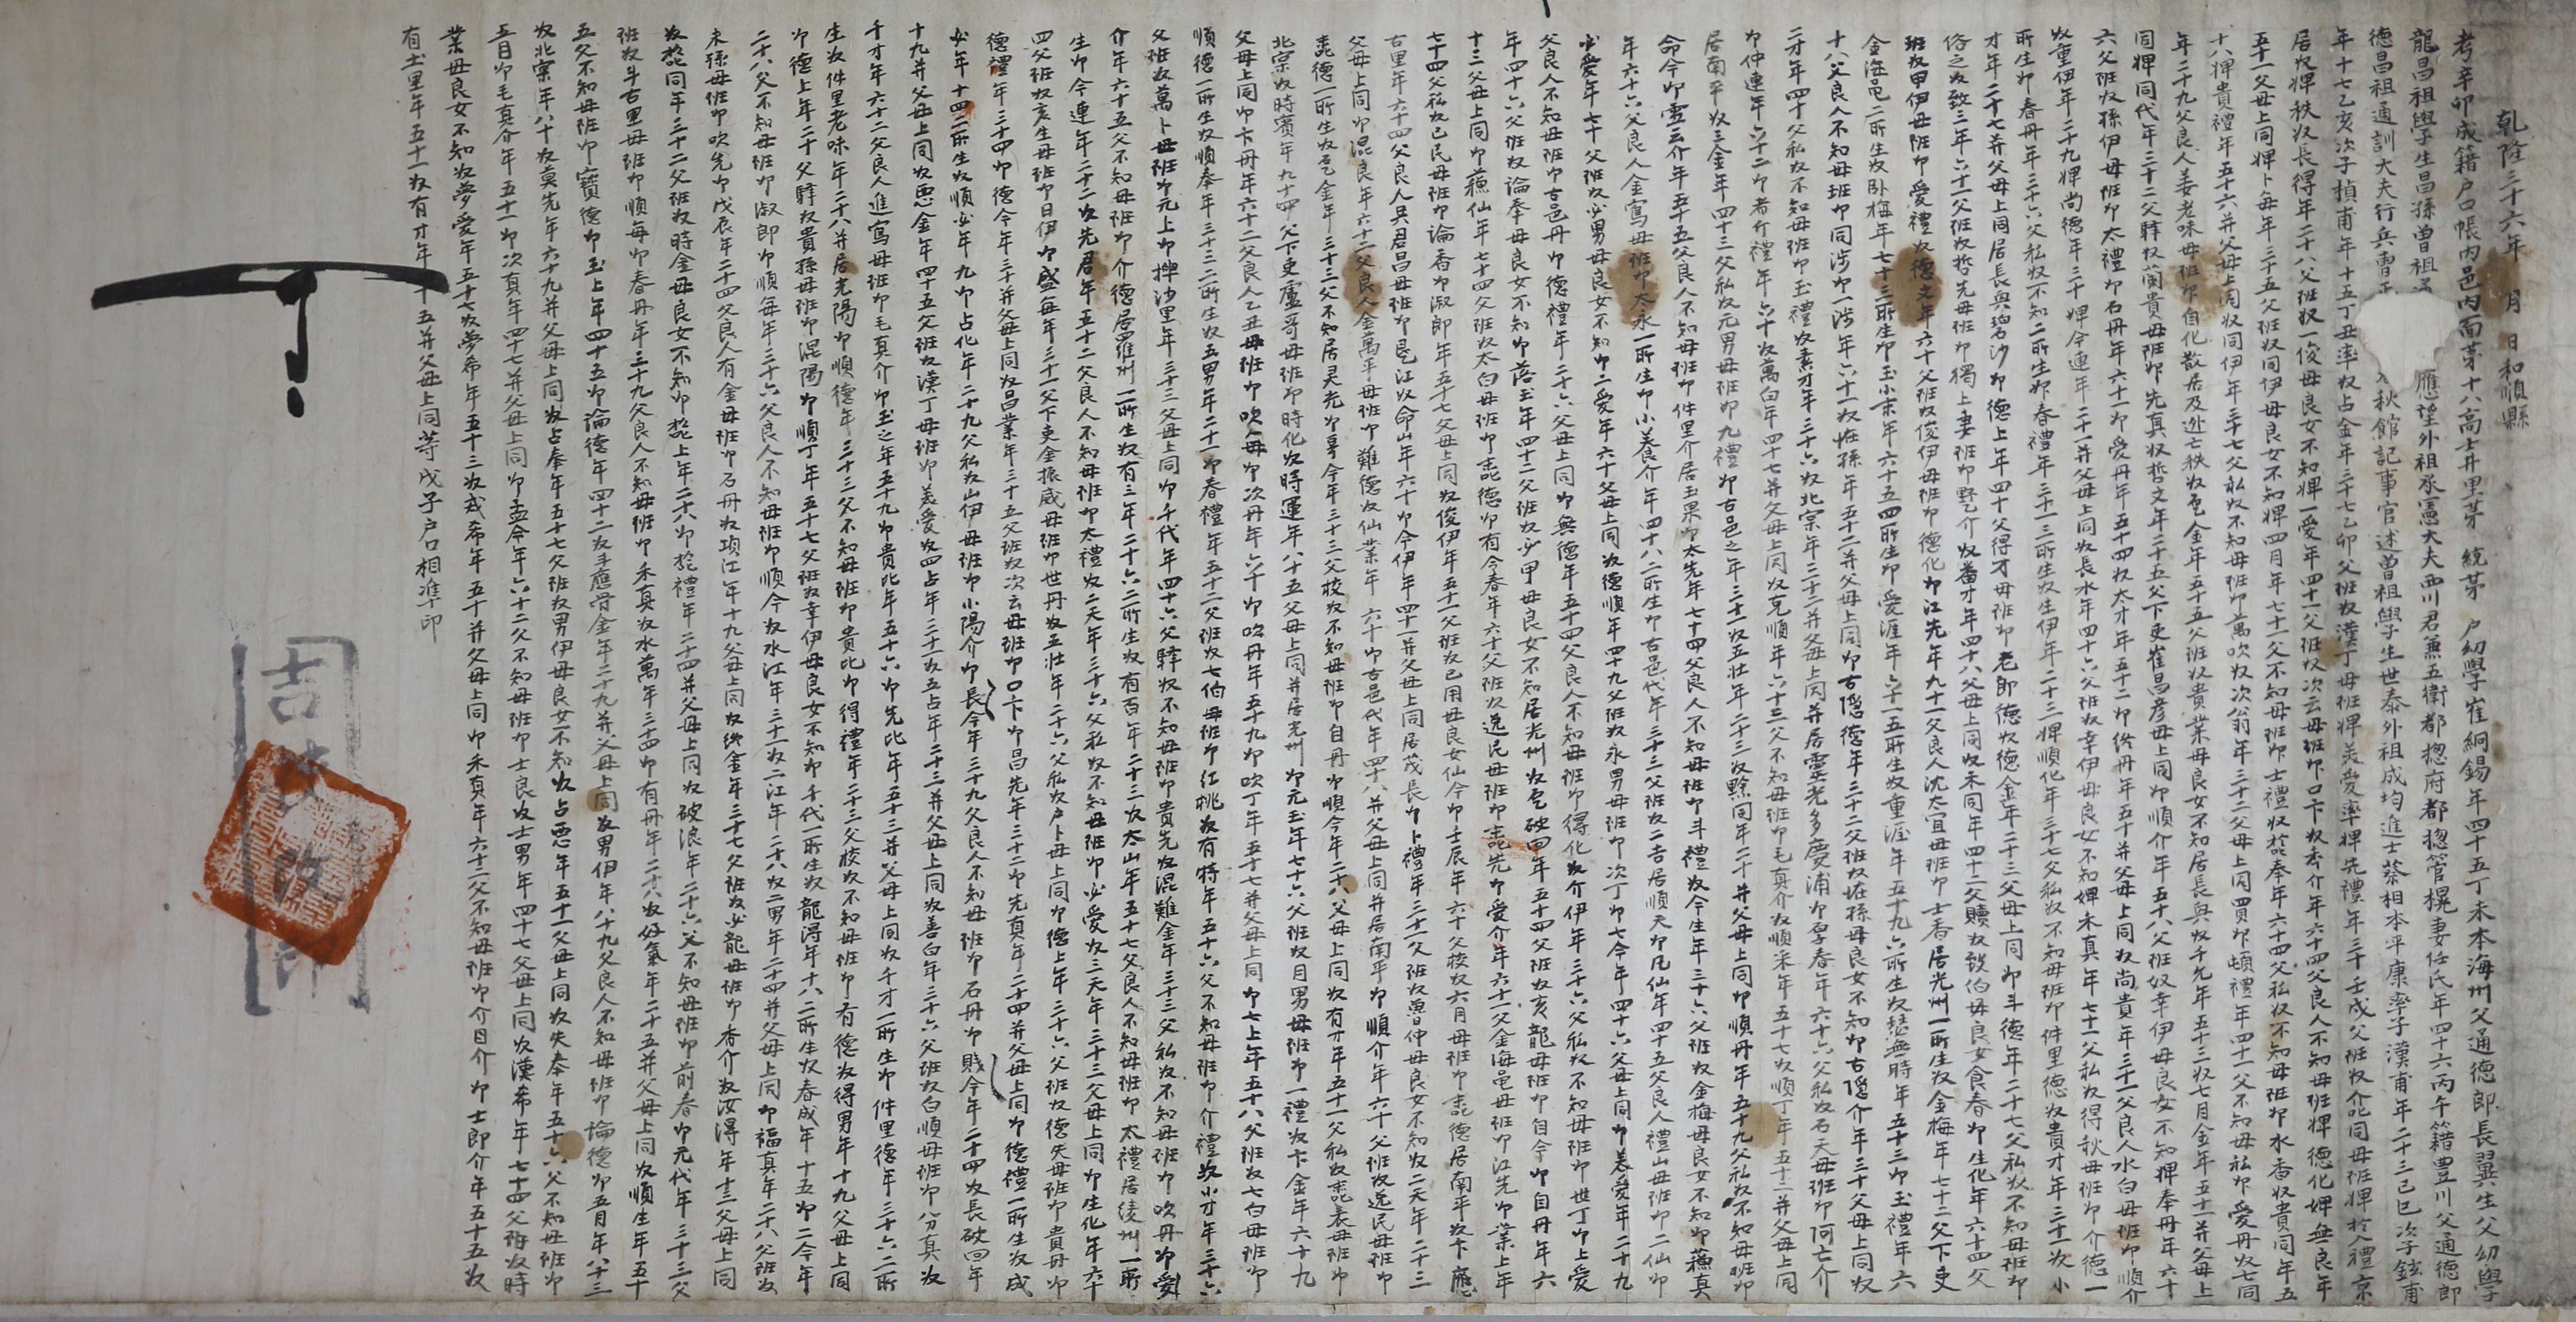 乾隆三十六年 月 日和順縣
考辛卯成籍戶口帳內邑內面第十八高士井里第 統第 戶幼學崔絅錫年四十五丁未本海州父通德郎長翼生父幼學
龍昌祖學生昌孫曾祖 應望外祖承憲大夫西川君兼五衛都摠府都摠管榥妻任氏年四十六丙午籍豊川父通德郎
德昌祖通訓大夫行兵曹正 秋館記事官述曾祖學生世泰外祖成均進士蔡相本平康率子漢甫年二十三己巳次子鉉甫
年十七乙亥次子楨甫年十五丁丑率奴占金年三十七乙卯父班奴漢丁母班婢美愛率婢先禮年三十壬戌父班奴介同母班婢於八禮京
居奴婢秩奴長得年二十八父班奴一俊母良女不知婢一愛年四十一父班奴次云母班卩口卞奴 介年六十四父良人不知母班婢德化婢無良年
五十一父母上同婢卜每年三十五父班奴同伊母良女不知婢四月年七十一父不知母班卩士禮奴 奉年六十四父私奴不知母班卩水香奴貴同年五
十八婢貴禮年五十六幷父母上同奴同伊年三十七父私奴不知母班卩萬吹奴次翁年三十二父母上同買卩頓禮年四十一父不知母私卩愛丹奴七同
年二十九父良人姜老味母班卩自化散居及逃亡秩奴 金年五十五父班奴貴業母良女不知居長興奴千先年五十三奴七月金年五十一幷父母上
同婢同代年三十二父驛奴蘭貴母班卩先眞奴哲文年二十五父下吏崔昌彦母上同卩順介年五十八父班奴幸伊母良女不知婢奉丹年六十
六父班奴孫伊母班卩太禮卩石丹年六十一卩愛丹年五十四奴太才年五十二卩 丹年五十幷父母上同奴尚貴年三十一父良人水白母班卩順介
奴重伊年二十九婢尚德年三十婢今連年二十一幷父母上同奴長水年四十六父班奴幸伊母良女不知婢禾眞年七十一父私奴得秋母班卩介德一
所生卩春丹年三十六父私奴不知二所生卩春禮年三十一三所生奴生伊年二十三婢順化年三十七父私奴不知母班卩件里德奴貴才年三十一奴小
才年二十七幷父母上同居長興碧沙卩德上年四十父得才母班卩老郎德奴德金年二十三父母上同卩斗德年二十七父私奴不知母班卩
 之奴致三年六十一父班奴哲先母班卩獨上妻班卩野介奴 才年四十八父母上同奴禾同年四十二父贖奴 伯母良女食春卩生化年六十四父
班奴甲伊母班卩愛禮奴德文年六十父班奴俊伊母班卩德化卩江先年九十一父良人沈太宜母班卩士香居光州一所生奴金梅年七十二父下吏
金海邑二所生奴卧梅年七十三所生卩玉小末年六十五四所生卩愛涯年六十一五所生奴重涯年五十九六所生奴 無時年五十三卩玉禮年六
十八父良人不知母班卩同涉卩一涉年六十一奴 孫年五十二幷父母上同卩古隱德年三十二父班奴 孫母良女不知卩古隱介年三十父母上同奴
二才年四十父私奴不知母班卩玉禮奴 才年三十六奴北宗年三十二幷父母上同幷居靈光多慶浦卩厚春年六十六父私奴石天母班卩阿亡介
卩仲連年六十二卩者斤禮年六十奴萬白年四十七幷父母上同奴克順年六十三父不知母班卩毛眞介奴順采年五十七奴順丁年五十一幷父母上同
居南平奴三金年四十三父私奴元男母班卩九禮卩古邑之年三十一奴五壯年二十三奴 同年二十幷父母上同卩順丹年五十九父私奴不知母班卩
命今卩雲三介年五十五父良人不知母班卩件里介居玉果卩太先年七十四父良人不知母班卩斗禮奴今生年三十六父班奴金梅母良女不知卩 眞
年六十六父良人金寫母班卩太永一所生卩小養介年四十八二所生卩古邑代年三十三父班奴二 居順天卩凡仙年四十五父良人禮山母班卩二仙卩
 愛年七十父班奴必男母良女不知卩二愛年六十父母上同奴德順年四十九父班奴永男母班卩次丁卩七今年四十六父母上同卩 愛年二十九
父良人不知母班卩古邑丹卩德禮年二十六父母上同卩無德年五十四父良人不知母班卩得化奴介伊年三十六父私奴不知母班卩世丁卩上愛
年四十六父班奴論奉母良女不知卩落玉年四十二父班奴少甲母良女不知居光州奴 破回年五十四父班奴亥龍母班卩自今卩自丹年六
十三父母上同卩 仙年七十四父班奴太白母班卩 德卩有今春年六十父班奴逸民母班卩 先卩愛介年六十一父金海邑母班卩江先卩業上年
七十四父私奴己民母班卩論香卩淑郎年五十七父母上同奴俊伊年五十一父班奴己用母良女仙今卩壬辰年六十父校奴六月母班卩 德居南平奴卞應
古里年六十四父良人吳君昌母班卩 江奴命山年六十卩今伊年四十一幷父母上同居茂長卩卜禮年三十一父班奴 仲母良女不知奴二天年二十三
 德一所生奴 金年三十三父不知居灵光卩 今年三十三父校奴不知母班卩自丹卩順今年二十八父母上同奴有才年五十一父私奴 表母班卩
父母上同卩混良年六十二父良人金萬平母班卩難德奴仙業年六十卩古邑代年四十八幷父母上同幷居南平卩順介年六十父班奴逸民母班卩
北宗奴時賓年九十四父下吏盧哥母班卩時化奴時運年八十五父母上同幷居光州卩元玉年七十六父班奴目男母班卩一禮奴卞金年六十九
父母上同卩卞丹年六十二父良人乙丑母班卩吹每卩次丹年六十卩吹丹年五十九卩吹丁年五十七幷父母上同卩七上年五十八父班奴七白母班卩
順德一所生奴順奉年三十三二所生奴五男年二十一卩春禮年五十二父班奴七伯母班卩紅桃奴有特年五十六父不知母班卩介禮奴小才年三十六
父班奴萬卜母班卩元上卩押沙里年三十三父母上同卩千代年四十六父驛奴不知母班卩貴先奴混難金年三十三父私奴不知母班卩吹丹卩愛
介年六十五父不知母班卩介德居羅州一所生奴有三年二十六二所生奴有百年二十三奴太山年五十七父良人不知母班卩太禮居綾州一所
生卩今連年二十二奴先君年五十二父良人不知母班卩太禮奴二天年三十六父私奴不知母班卩必愛奴二天年三十三父母上同卩生化年六十
四父班奴亥生母班卩日伊卩盛每年三十一父下吏金振威母班卩世丹奴五壯年二十六父私奴戶卜母上同卩德上年三十六父班奴德失母班卩貴丹卩
德禮年三十四卩德今年三十幷父母上同奴昌業年三十五父班奴次云母班卩口卞卩昌先年三十二卩先眞年二十四幷父母上同卩德禮一所生奴成
必年十四二所生奴順必年九卩占化年二十九父私奴山伊母班卩小陽介卩長今年三十九父良人不知母班卩石丹卩賤今年二十四奴長破回年
十九幷父母上同奴惡金年四十五父班奴漢丁母班卩美愛奴四占年三十一奴五占年二十三幷父母上同奴善白年三十六父班奴白順母班卩八分眞奴
千才年六十二父良人進寫母班卩毛眞介卩玉之年五十九卩貴比年五十六卩先比年五十三幷父母上同奴千才一所生卩件里德年三十六二所
生奴件里老味年二十八幷居光陽卩順德年三十三父不知母班卩貴比卩得禮年二十三父校奴不知母班卩有德奴得男年十九父母上同
卩德上年二十父驛奴貴孫母班卩混陽卩順丁年五十七父班奴幸伊母良女不知卩千代一所生奴龍得年十八二所生奴春成年十五卩二今年
二十八父不知母班卩淑郎卩順每年三十六父良人不知母班卩順今奴水江年三十一奴二江年二十八奴二男年二十四幷父母上同卩福眞年二十八父班奴
末孫母班卩吹先卩戊辰年二十四父良人有金母班卩石丹奴項江年十九父母上同奴 金年三十七父班奴少龍母班卩香介奴汝得年十三父母上同
奴於同年三十二父班奴時金母良女不知卩於上年二十八卩於禮年二十四幷父母上同奴破浪年二十六父不知母班卩前春卩元代年三十三父
班奴斗古里母班卩順每卩春丹年三十九父良人不知母班卩禾眞奴水萬年三十四卩有丹年二十八奴好氣年二十五幷父母上同奴順生年五十
五父不知母班卩寶德卩玉上年四十五卩論德年四十二奴 應骨金年二十九幷父母上同奴男伊年八十九父良人不知母班卩論德卩五月年八十三
奴北宗年八十奴莫先年六十九幷父母上同奴占奉年五十七父班奴男伊母良女不知奴占惡年五十一父母上同奴失奉年五十六父不知母班卩
五目卩毛眞介年五十一卩次眞年四十七幷父母上同卩孟今年六十二父不知母班卩士良奴士男年四十七父母上同奴漢希年七十四父班奴時
業母良女不知奴夢愛年五十七奴夢希年五十三奴 希年五十幷父母上同卩禾眞年六十三父不知母班卩介目介卩士郎介年五十五奴
有土里年五十一奴有才年 十五幷父母上同等戊子戶口相準印
周挾改印